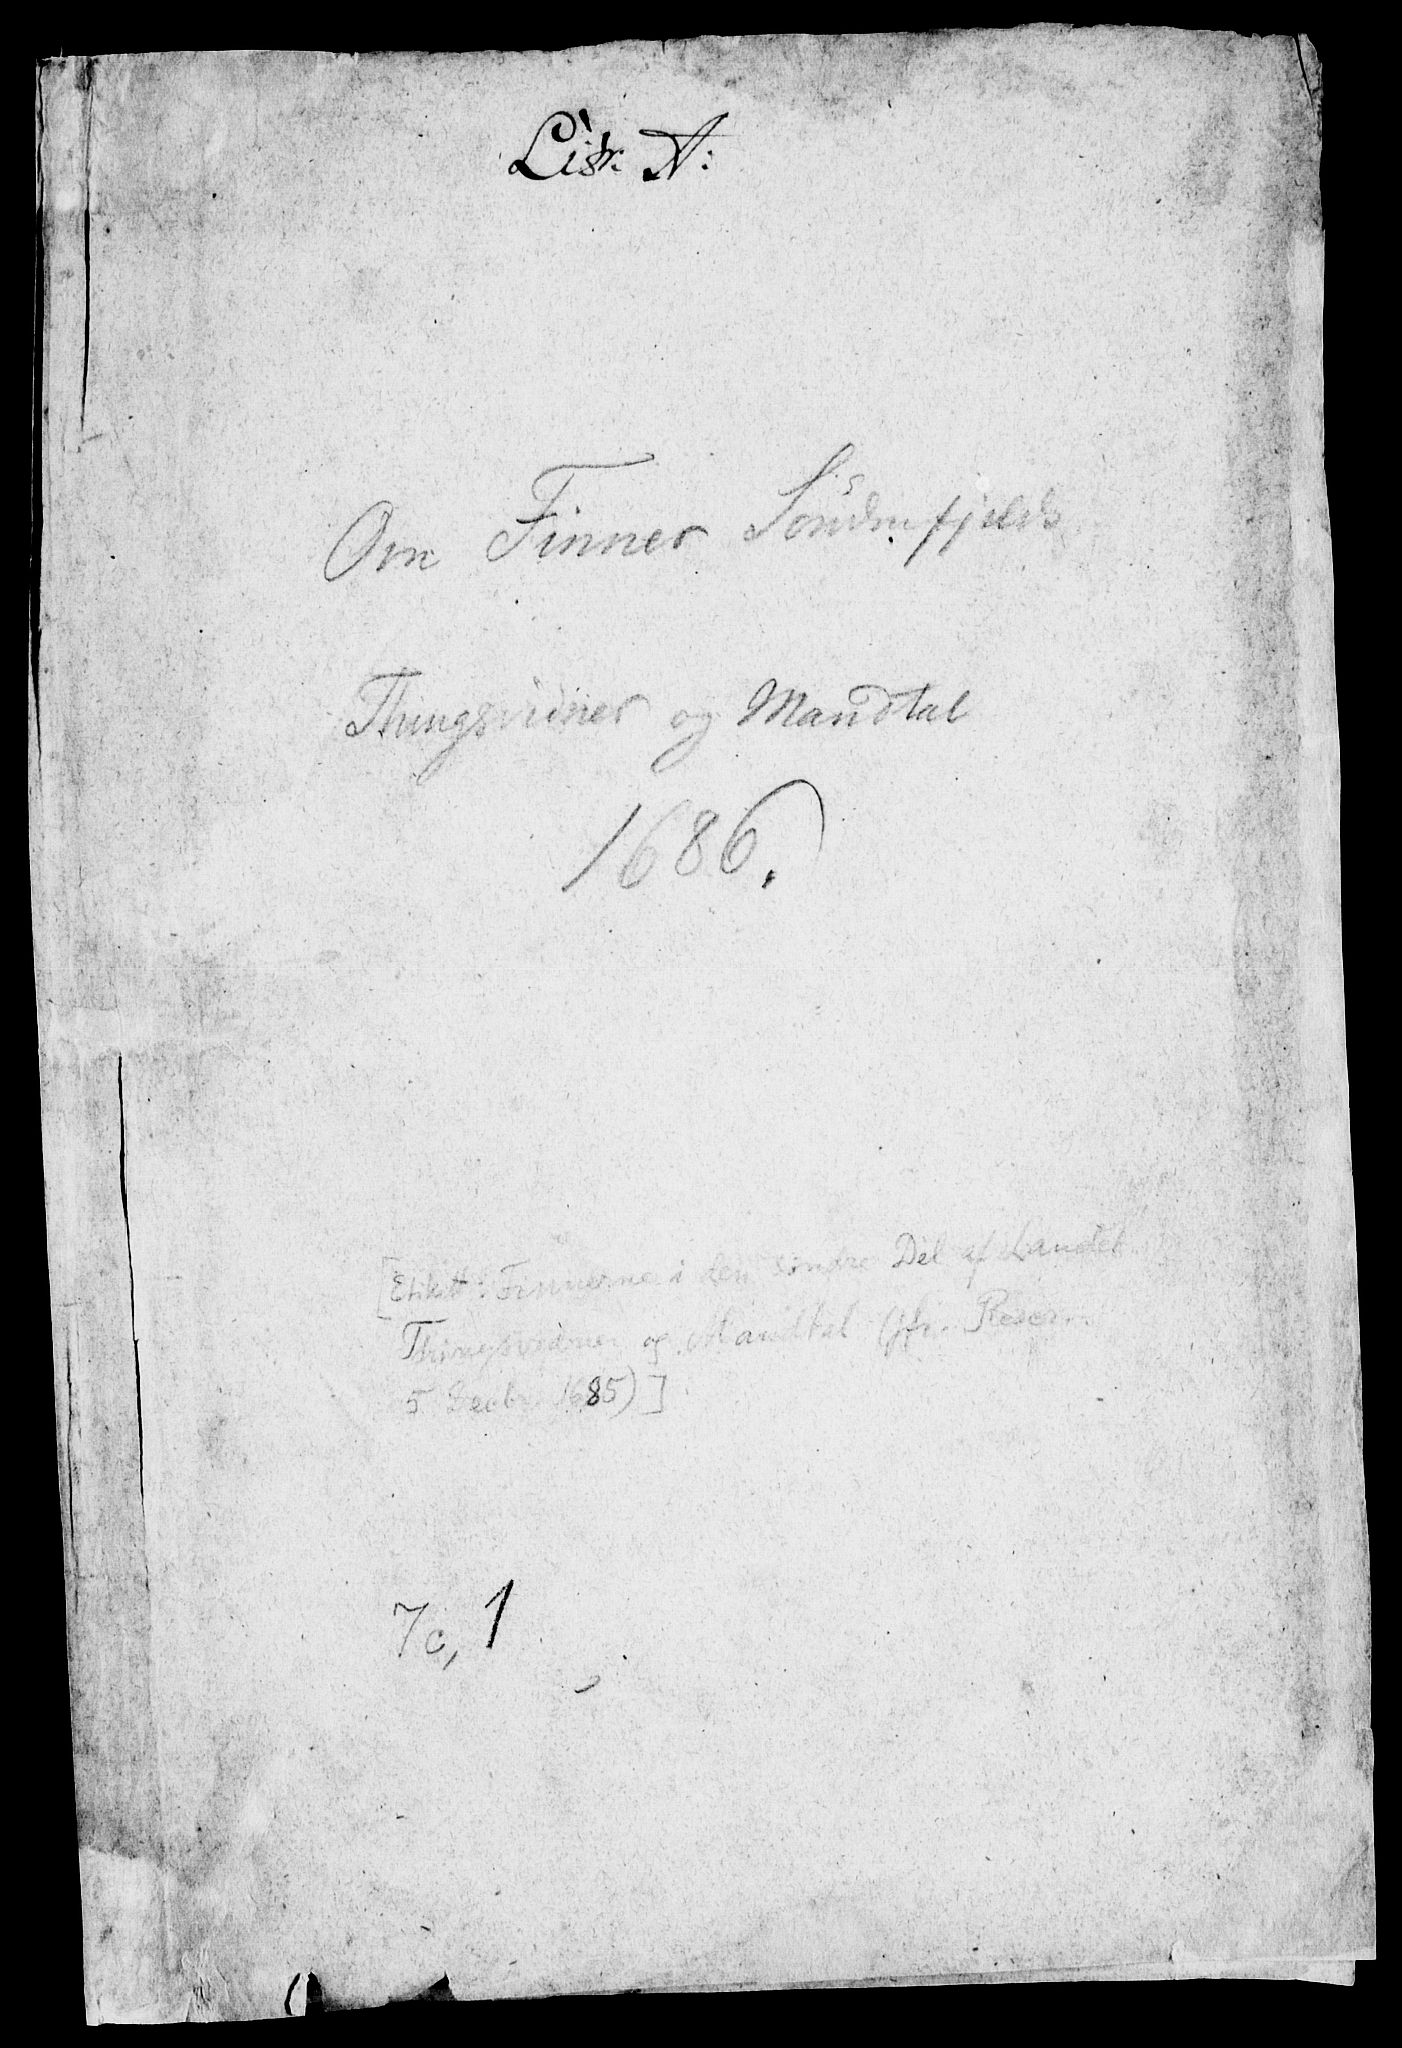 Litr. A:
Om Finner Söndenfjelds
Thingsvidner og Mandtal
1686.
[Etikett: Finnerne i den söndre Del af Landet.
Thingsvidner og Mandtal (jfr. Reser.
5 Decbr 1685)]
7c, 1